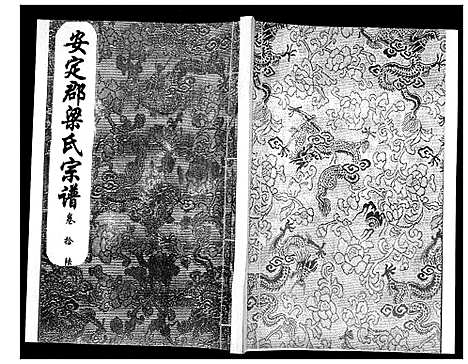 安定郡梁氏宗谱
卷拾陆